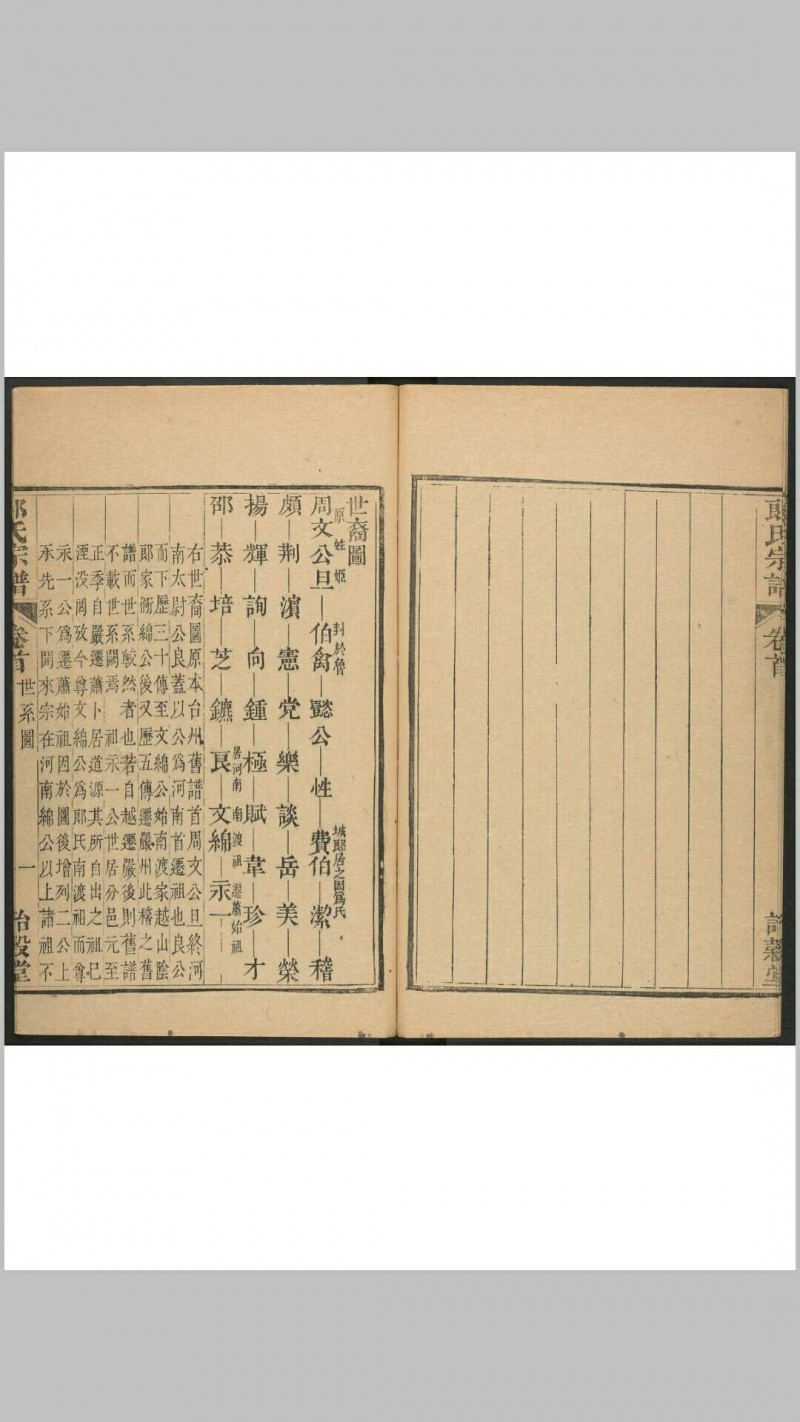 郎氏宗譜 卷首
世裔圖
原姓姬 封於魯 城郎居之因爲氏
周文公旦—伯禽—懿公—性—費伯—潔—稽
頗—荆—濱—憲—党—樂—談—岳—美—榮
揚—輝—詢—向—鍾—極—賦—韋—珍—才
居河南 南渡祖 遷蕭始祖
邵—恭—培—芝—鑣—良—文綿—永一
右世裔圖原本台州舊譜首周文公旦終河
南太尉公良蓋以公爲河南首遷祖也良公
而下歷三十傳至文綿公始南渡家越山陰
郎家衖綿公後又歷五傳遷嚴州此稽之舊
譜而世系較然者也若自越遷嚴後則舊譜
不載世系闕焉 祖永一公世居分邑元至
正季自嚴遷蕭卜居道源其所自出之祖已
湮没罔攷今尊文綿公爲郎氏南渡祖而尊
永一公爲遷蕭始祖因於圖後增列二公上
承先系下開來宗在河南綿公以上諸祖不
郎氏宗譜 卷首 世系圖 一 詒穀堂